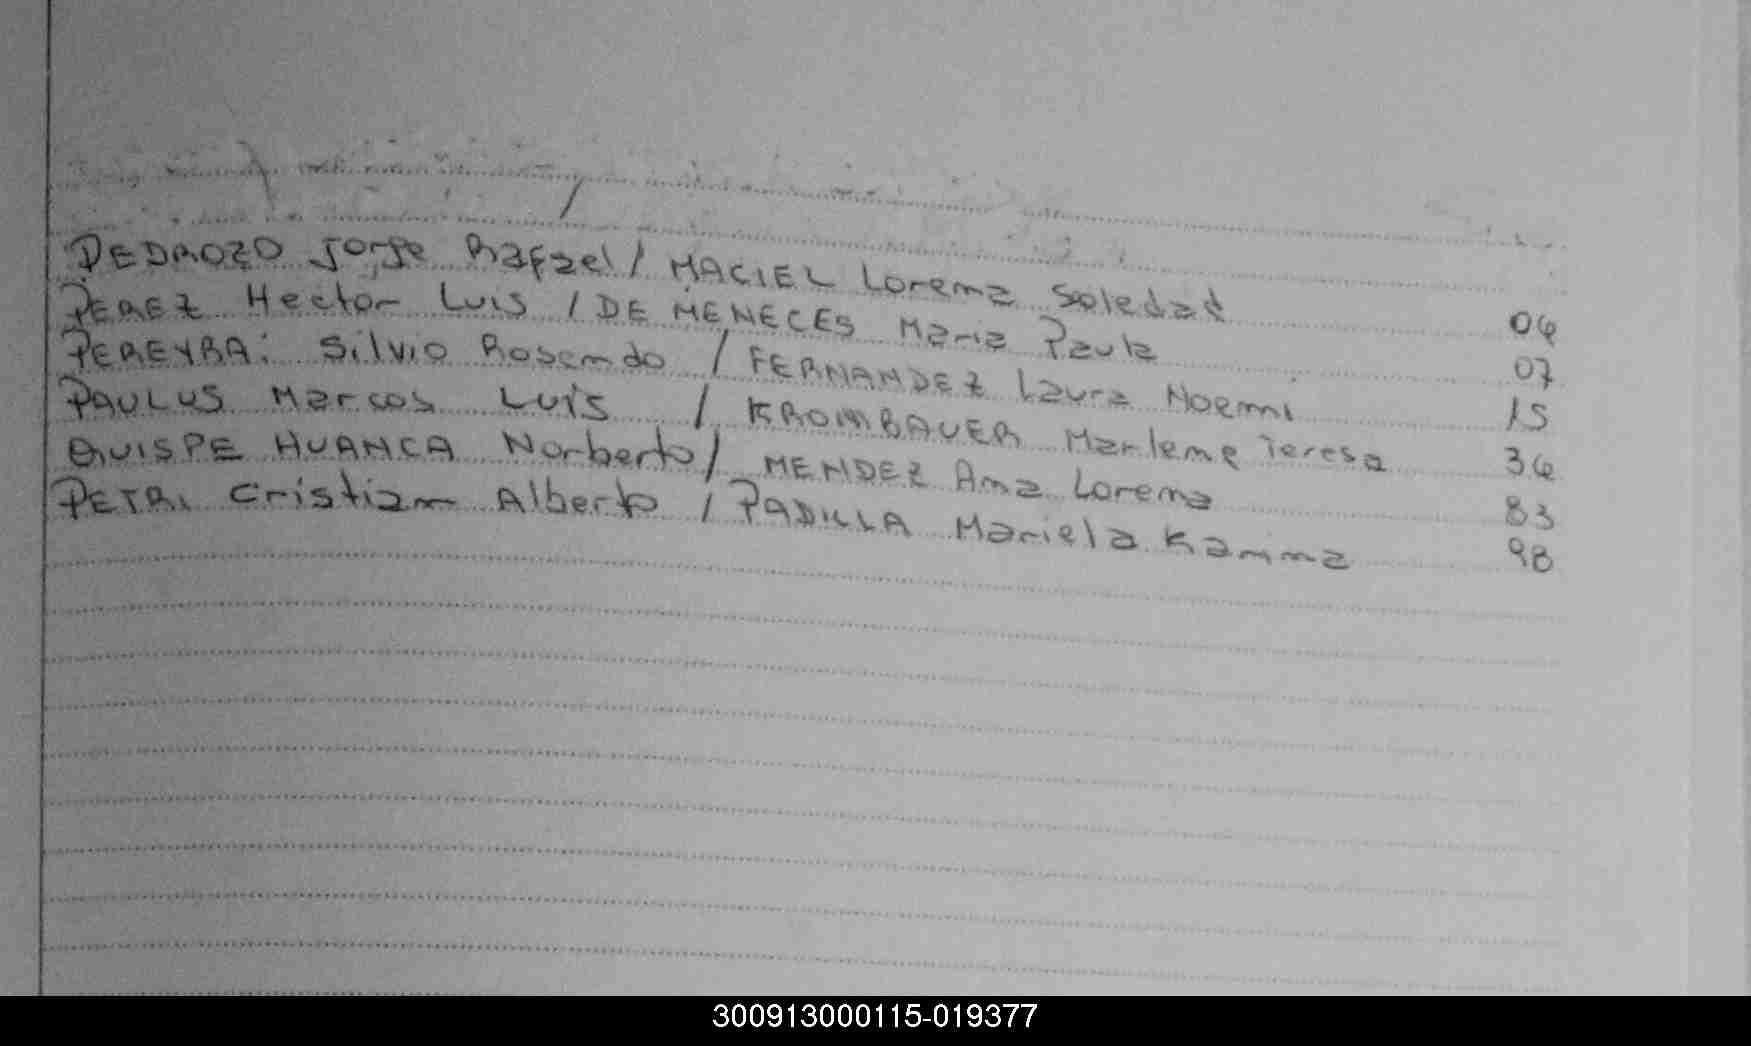 PEDROZO Jorge Rafael / MACIEL Lorena Soledad 04
PEREZ Hector Luis / DE MENECES Maria Paula 07
PEREYRA: Silvio Rosendo / FERNANDEZ Laura Noemi 15
PAULUS Marcos Luis / KROMBAUER Marlene Teresa 34
QUISPE HUANCA Norberto / MENDEZ Ana Lorena 83
PETRI Cristian Alberto / PADILLA Mariela Karina 98
300913000115-019377